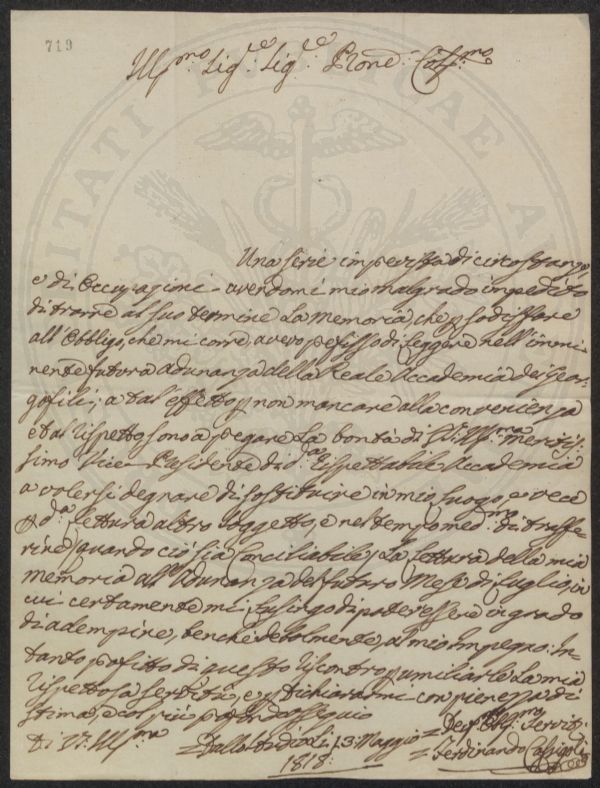 719
Ill.mo Sig.re Sig.re Pron.e Col.mo
Una serie imprevista di circostanze
e di Occupazioni avendomi mio malgrado impedito
di trarre al suo termine La Memoria, che p sodisfare
all'Obbligo, che mi corre, avevo prefisso di Leggere nell'immi-
nente futura adunanza della Reale Accademia dei Geor-
gofili, a tal'effetto p non mancare alla convenienza
e tal rispetto sono a pregare La bontà di V.S. Ill.ma meritis-
simo Vice-Presidente di d.a rispettabile Accademia
a volersi degnare di sostituire in mio Luogo, e vece
p d.a Lettura altro soggetto, e nel tempo med.mo di trasfe-
rire (quando ciò sia Conciliabile) La Lettura della mia
Memoria all'Adunanza del futuro Mese di Luglio, in
cui certamente mi Lusingo di poter essere in grado
di adempire, benchè debolmente, al mio impegno: In-
tanto profitto di questo riscontro p umiliarle La mia
rispettosa servitù, e p dichiararmi con pienezza di
stima, e col più profondo ossequio
Di V.S. Ill.ma
Dallo Studio li 13: Maggio
1818:
Dev.mo Obb.mo Servit.
Ferdinando